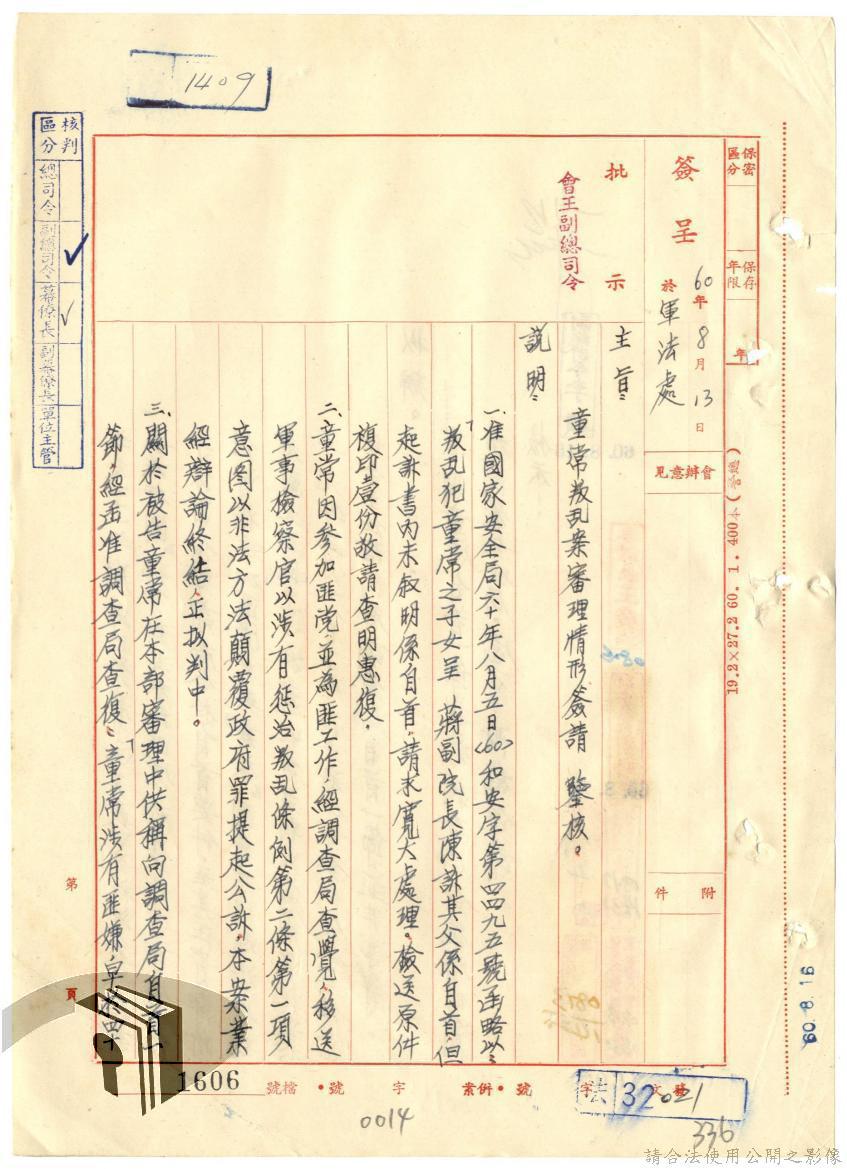 1409
保密區分
保存年限
年
19.2×27.2 60. 1. 400本(普通)
60. 8. 16
簽呈
60年8月13日
於軍法處
會辦意見
附件
批示
會王副總司令
主旨：
童常叛乱案審理情形簽請 鑒核。
説明：
一、准國家安全局六十年八月五日(60)和安字第四四九五號函略以：
「叛乱犯童常之子女呈 蔣副院長陳訴其父係自首，但
起訴書內未叙明係自首，請求寬大處理。檢送原件
複印壹份敬請查明惠復。
二、童常因參加匪党，並為匪工作，經調查局查覺，移送
軍事檢察官以涉有惩治叛乱條例第二條第一項
意图以非法方法顛覆政府罪提起公訴，本案業
經辯論終結，正拟判中。
三、關於被告童常在本部審理中供稱向調查局自首一
節，經函准調查局查復：「童常涉有匪嫌，早於四十
核判區分
總司令
副總司令
幕僚長
副幕僚長
單位主管
第 頁
字 號
檔號
1606
併案
號
0014
法
32
021
336
請合法使用公開之影像